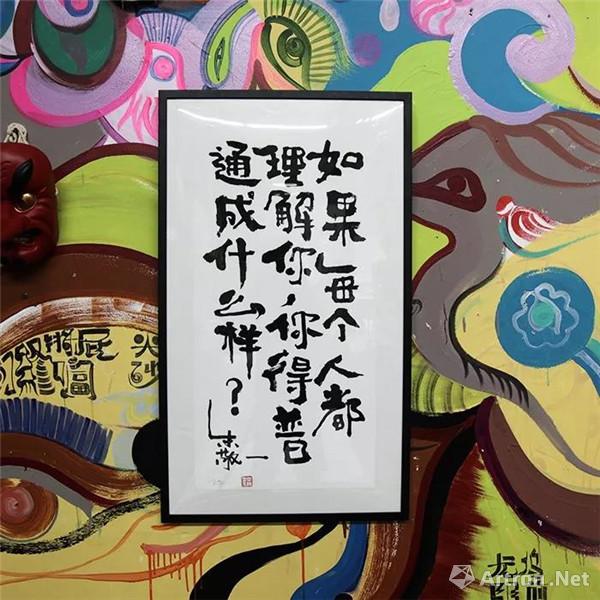 如果每个人都
理解你,你得普
通成什么样?
朱敬一
Artron.Net